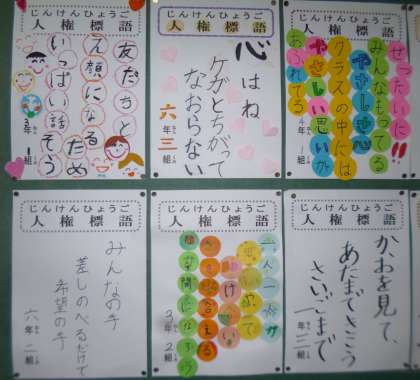 じんけんひょうご
人権標語
友だちと
え顔になる
ため
いっぱい話そう
3年1組
じんけんひょうご
人権標語
心はね
ケガとちがって
なおらない
六年三組
じんけんひょうご
人権標語
ぜったいに!!
みんなもってる
やさしさ
クラスの中には
やさしい思いが
あふれてる
4年1組
じんけんひょうご
人権標語
みんなの手
差しのべるだけで
希望の手
六年二組
じんけんひょうご
人権標語
一人一人が
合える
仲間になろう
3年2組
じんけんひょうご
人権標語
かおを見て、
あたまできこう
さいごまで
一年三組